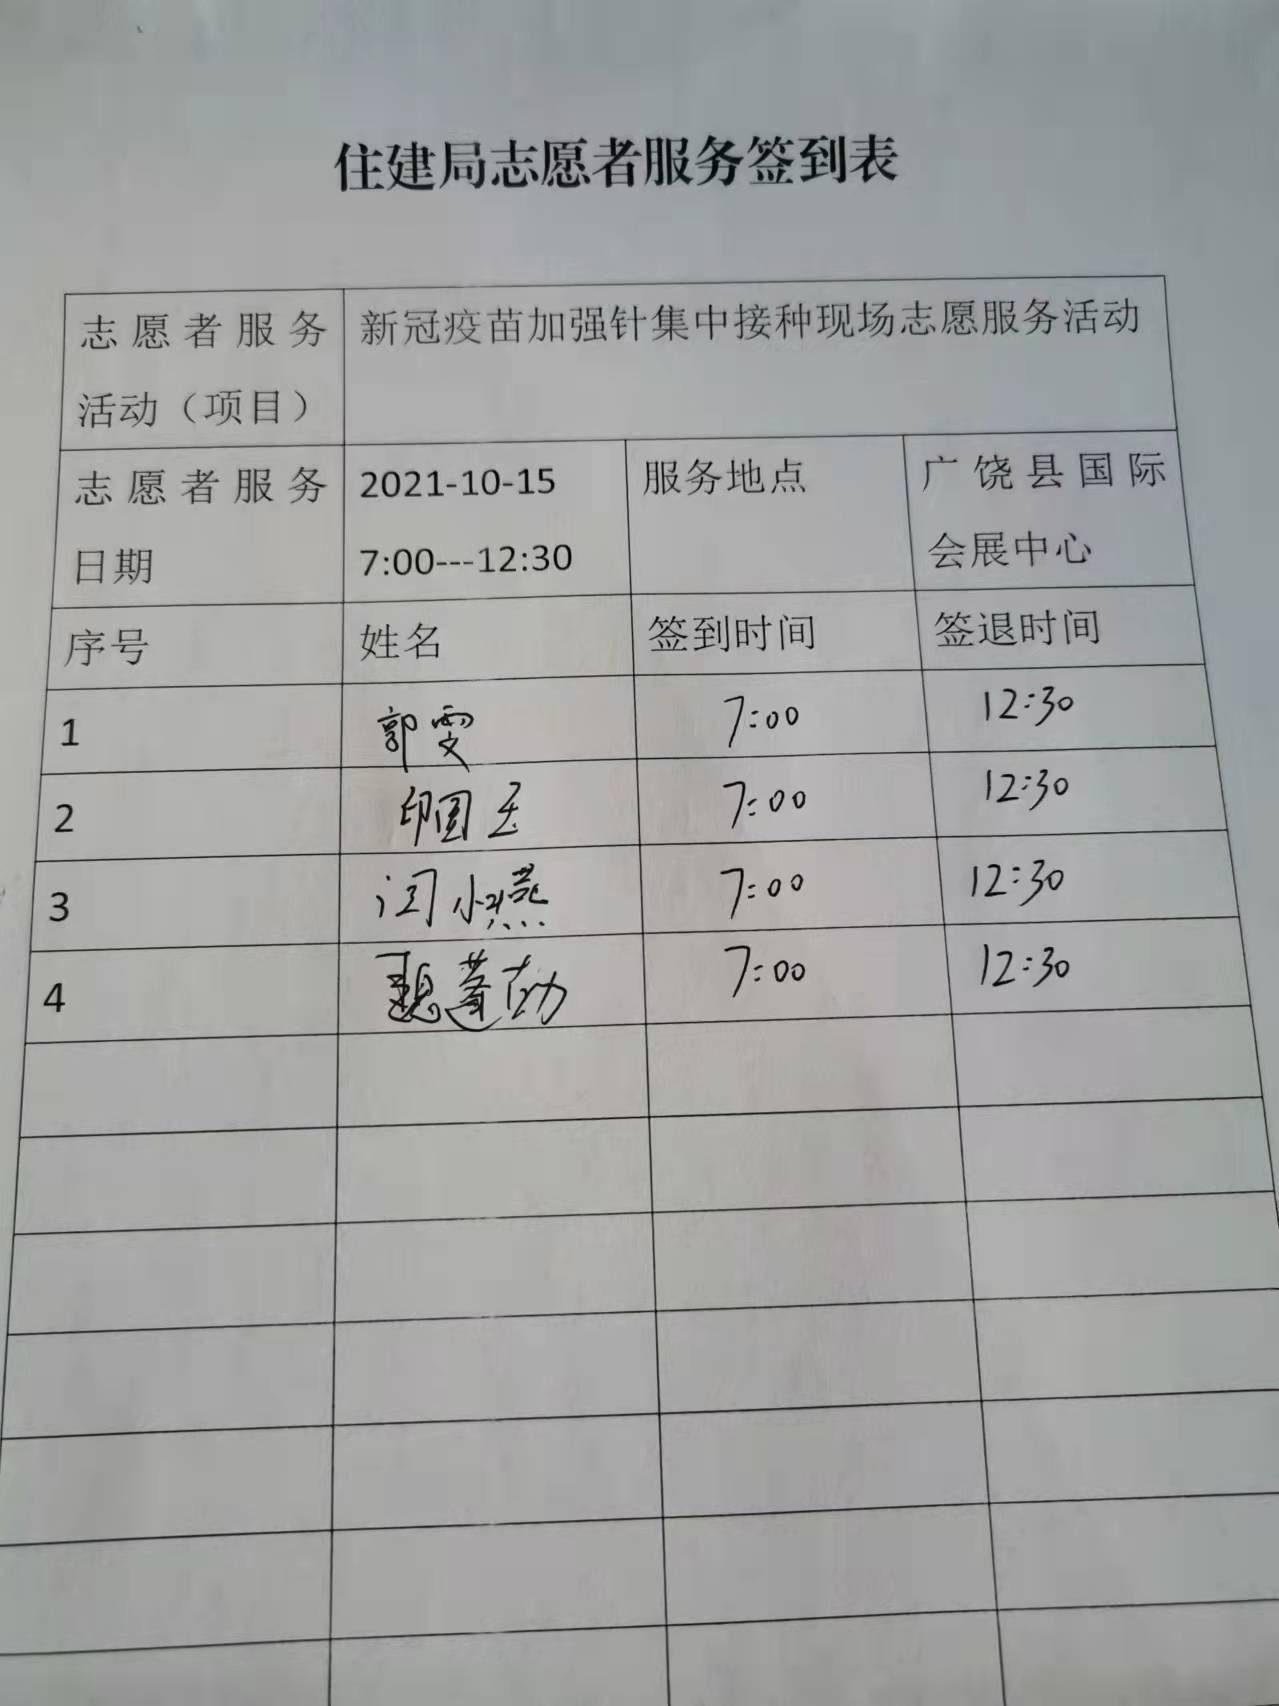 住建局志愿者服务签到表
志愿者服务 新冠疫苗加强针集中接种现场志愿服务活动
活动（项目）
志愿者服务 2021-10-15 服务地点 广饶县国际
日期 7:00---12:30 会展中心
序号 姓名 签到时间 签退时间
1 郭雯 7:00 12:30
2 印国玉 7:00 12:30
3 闫小燕 7:00 12:30
4 7:00 12:30